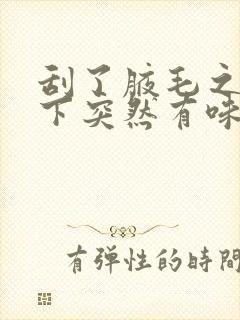 刮了腋毛之
下突然有味
有弹性的時間